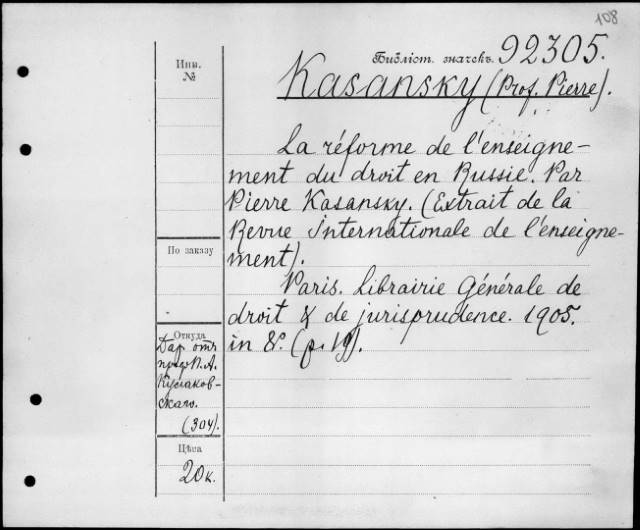 108
Библіот. значекъ 92305.
Инв.
№
Kasansky (Prof. Pierre).
La réforme de l'enseigne-
ment du droit en Russie. Par
Pierre Kasansky. (Extrait de la
Revue Internationale de l'enseigne-
ment).
По заказу
Paris. Librairie Générale de
droit & de jurisprudence. 1905.
in 8º. (p. 19).
Откуда
Дар отъ
проф. П. А.
Кулаков-
скаго.
(304).
Цѣна
20 к.